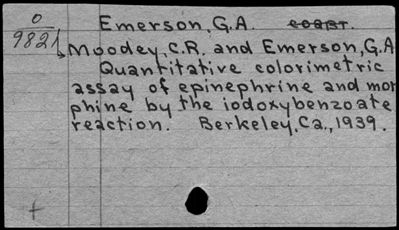 O
9821
Emerson, G.A. coart.
Moodey, C.R. and Emerson, G.A
Quantitative colorimetric
assay of epinephrine and mor
phine by the iodoxybenzoate
reaction. Berkeley, Ca., 1939.